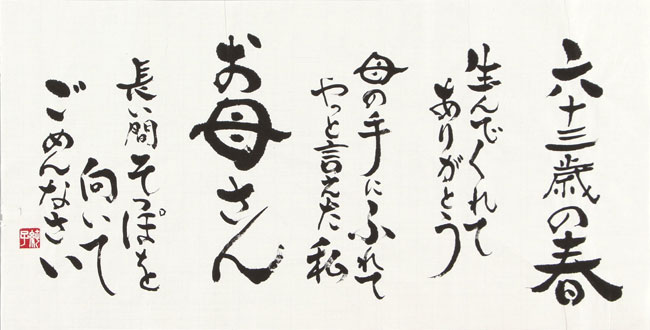 六十三歳の春
生んでくれて
ありがとう
母の手にふれて
やっと言えた私
お母さん
長い間そっぽを
向いて
ごめんなさい